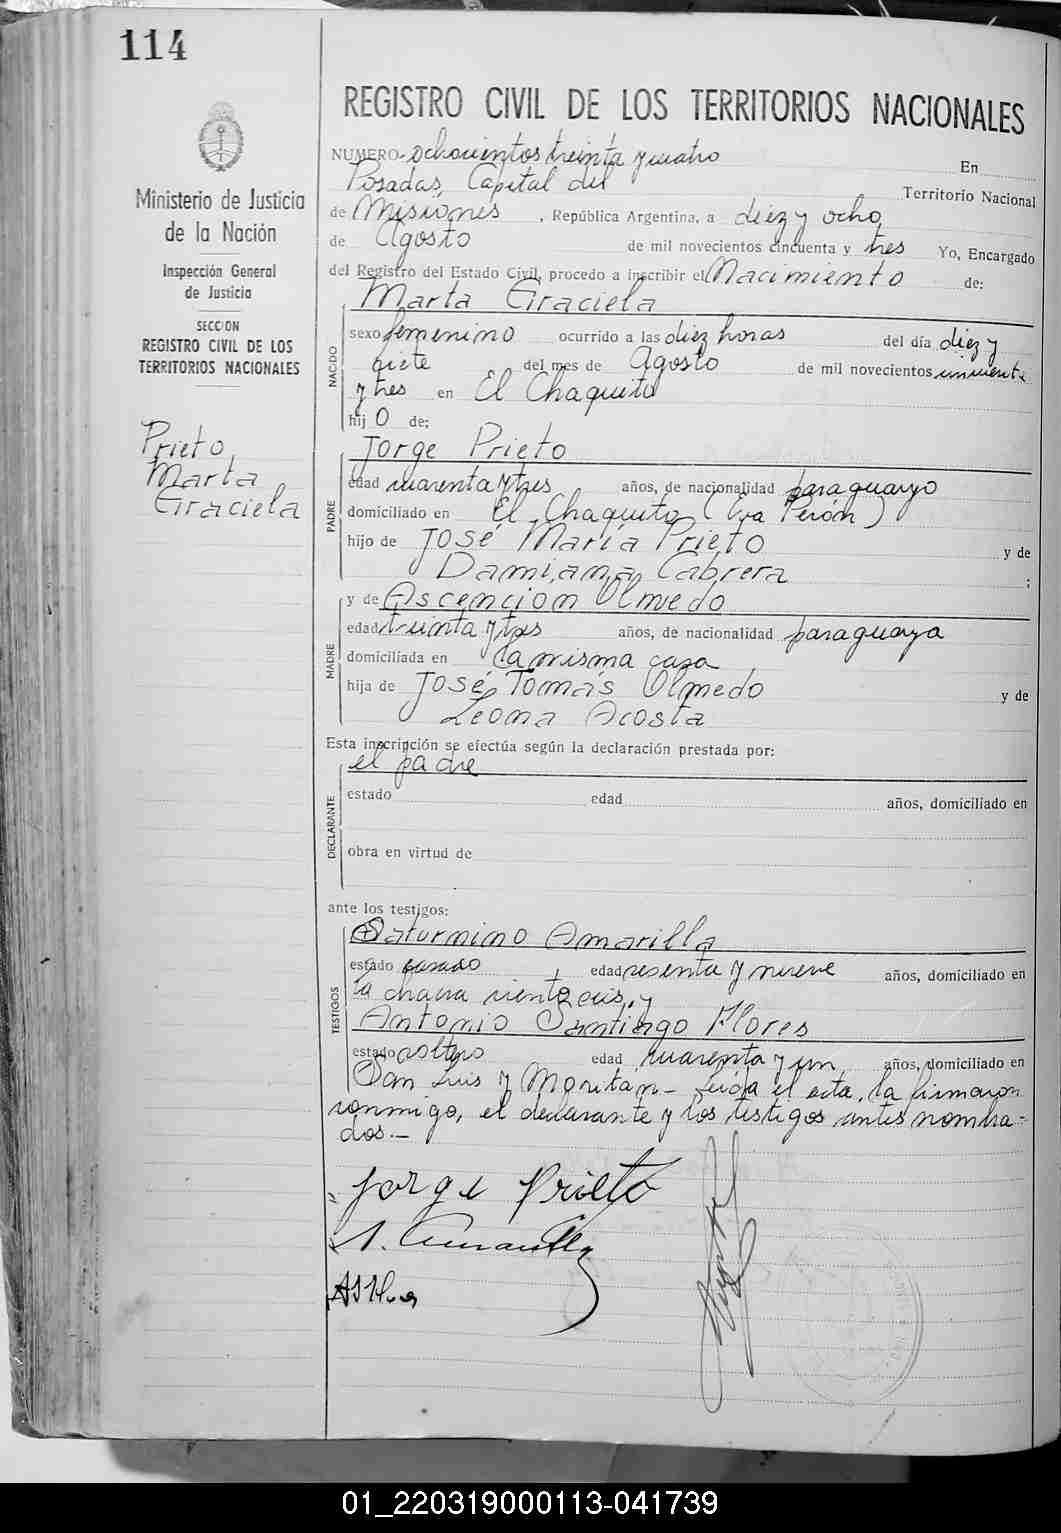 114
REGISTRO CIVIL DE LOS TERRITORIOS NACIONALES
Ministerio de Justicia
de la Nación
Inspección General
de Justicia
SECCION
REGISTRO CIVIL DE LOS
TERRITORIOS NACIONALES
Prieto
Marta
Graciela
NUMERO- ochocientos treinta y cuatro En
Posadas, Capital del Territorio Nacional
de Misiones , República Argentina, a diez y ocho
de Agosto de mil novecientos cincuenta y tres Yo, Encargado
del Registro del Estado Civil, procedo a inscribir el Nacimiento de:
NACIDO
Marta Graciela
sexo femenino ocurrido a las diez horas del día diez y
siete del mes de Agosto de mil novecientos cincuenta
y tres en El Chaquito
hij O de:
PADRE
Jorge Prieto
edad cuarenta y tres años, de nacionalidad paraguayo
domiciliado en El Chaquito (Eva Perón)
hijo de José María Prieto y de
Damiana Cabrera ;
MADRE
y de Ascencion Olmedo
edad treinta y tres años, de nacionalidad paraguaya
domiciliada en la misma casa
hija de José Tomás Olmedo y de
Leona Acosta
Esta inscripción se efectúa según la declaración prestada por:
DECLARANTE
el padre
estado edad años, domiciliado en
obra en virtud de
ante los testigos:
TESTIGOS
Saturnino Amarilla
estado casado edad sesenta y nueve años, domiciliado en
la chacra ciento seis, y
Antonio Santiago Flores
estado soltero edad cuarenta y un años, domiciliado en
San Luis y Moritan- Leida el acta, la firmaron
conmigo, el declarante y los testigos antes nombra=
dos.-
Jorge Prieto
A. Amarilla
01_220319000113-041739